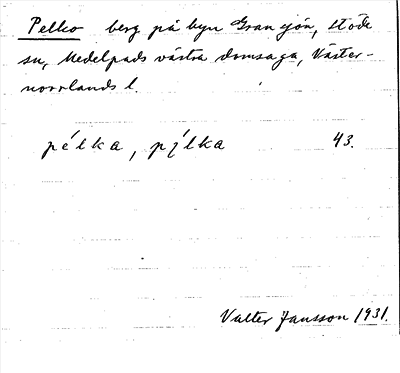 Pelko berg på byn Gransjön, Stöde
sn, Medelpads västra domsaga, Väster-
norrlands l.
pélka, pjlka 43.
Valter Jansson 1931.